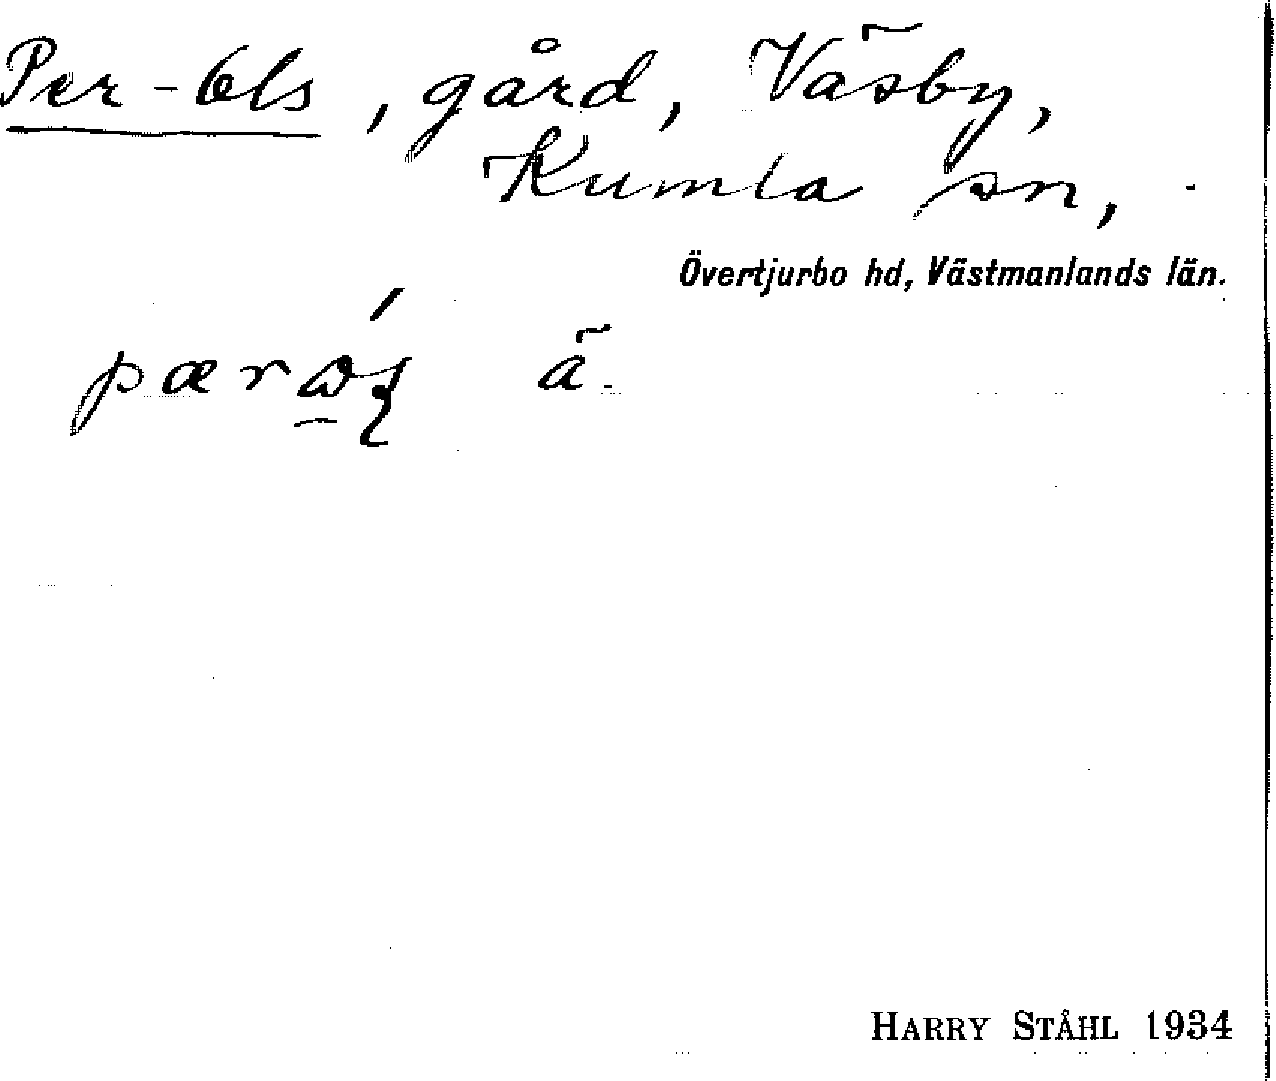 Per-Ols, gård, Väsby,
Kumla sn,
Övertjurbo hd, Västmanlands län.
ä.
HARRY STÅHL 1934